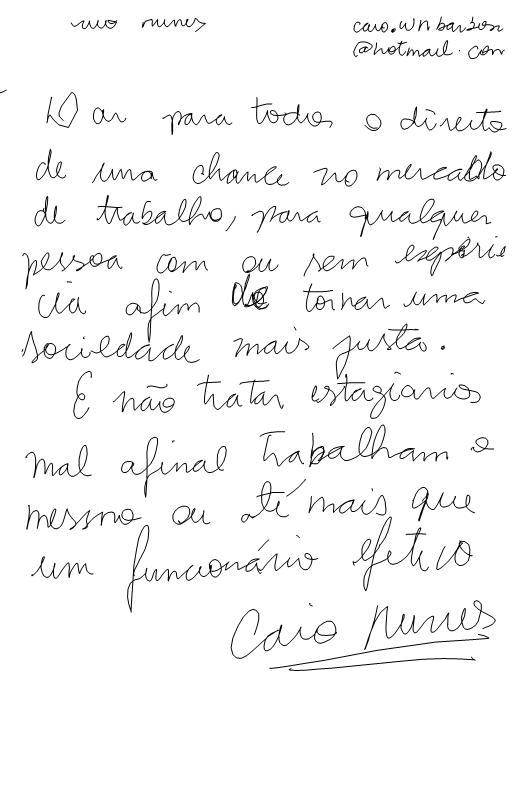 caio nunes
caio.wnbarbosa
@hotmail.com
Dar para todos o direito
de uma chance no mercado
de trabalho, para qualquer
pessoa com ou sem experiê
cia afim de tornar uma
sociedade mais justa.
E não tratar estagiarios
mal afinal trabalham o
mesmo ou até mais que
um funcionário efetivo
Caio Nunes